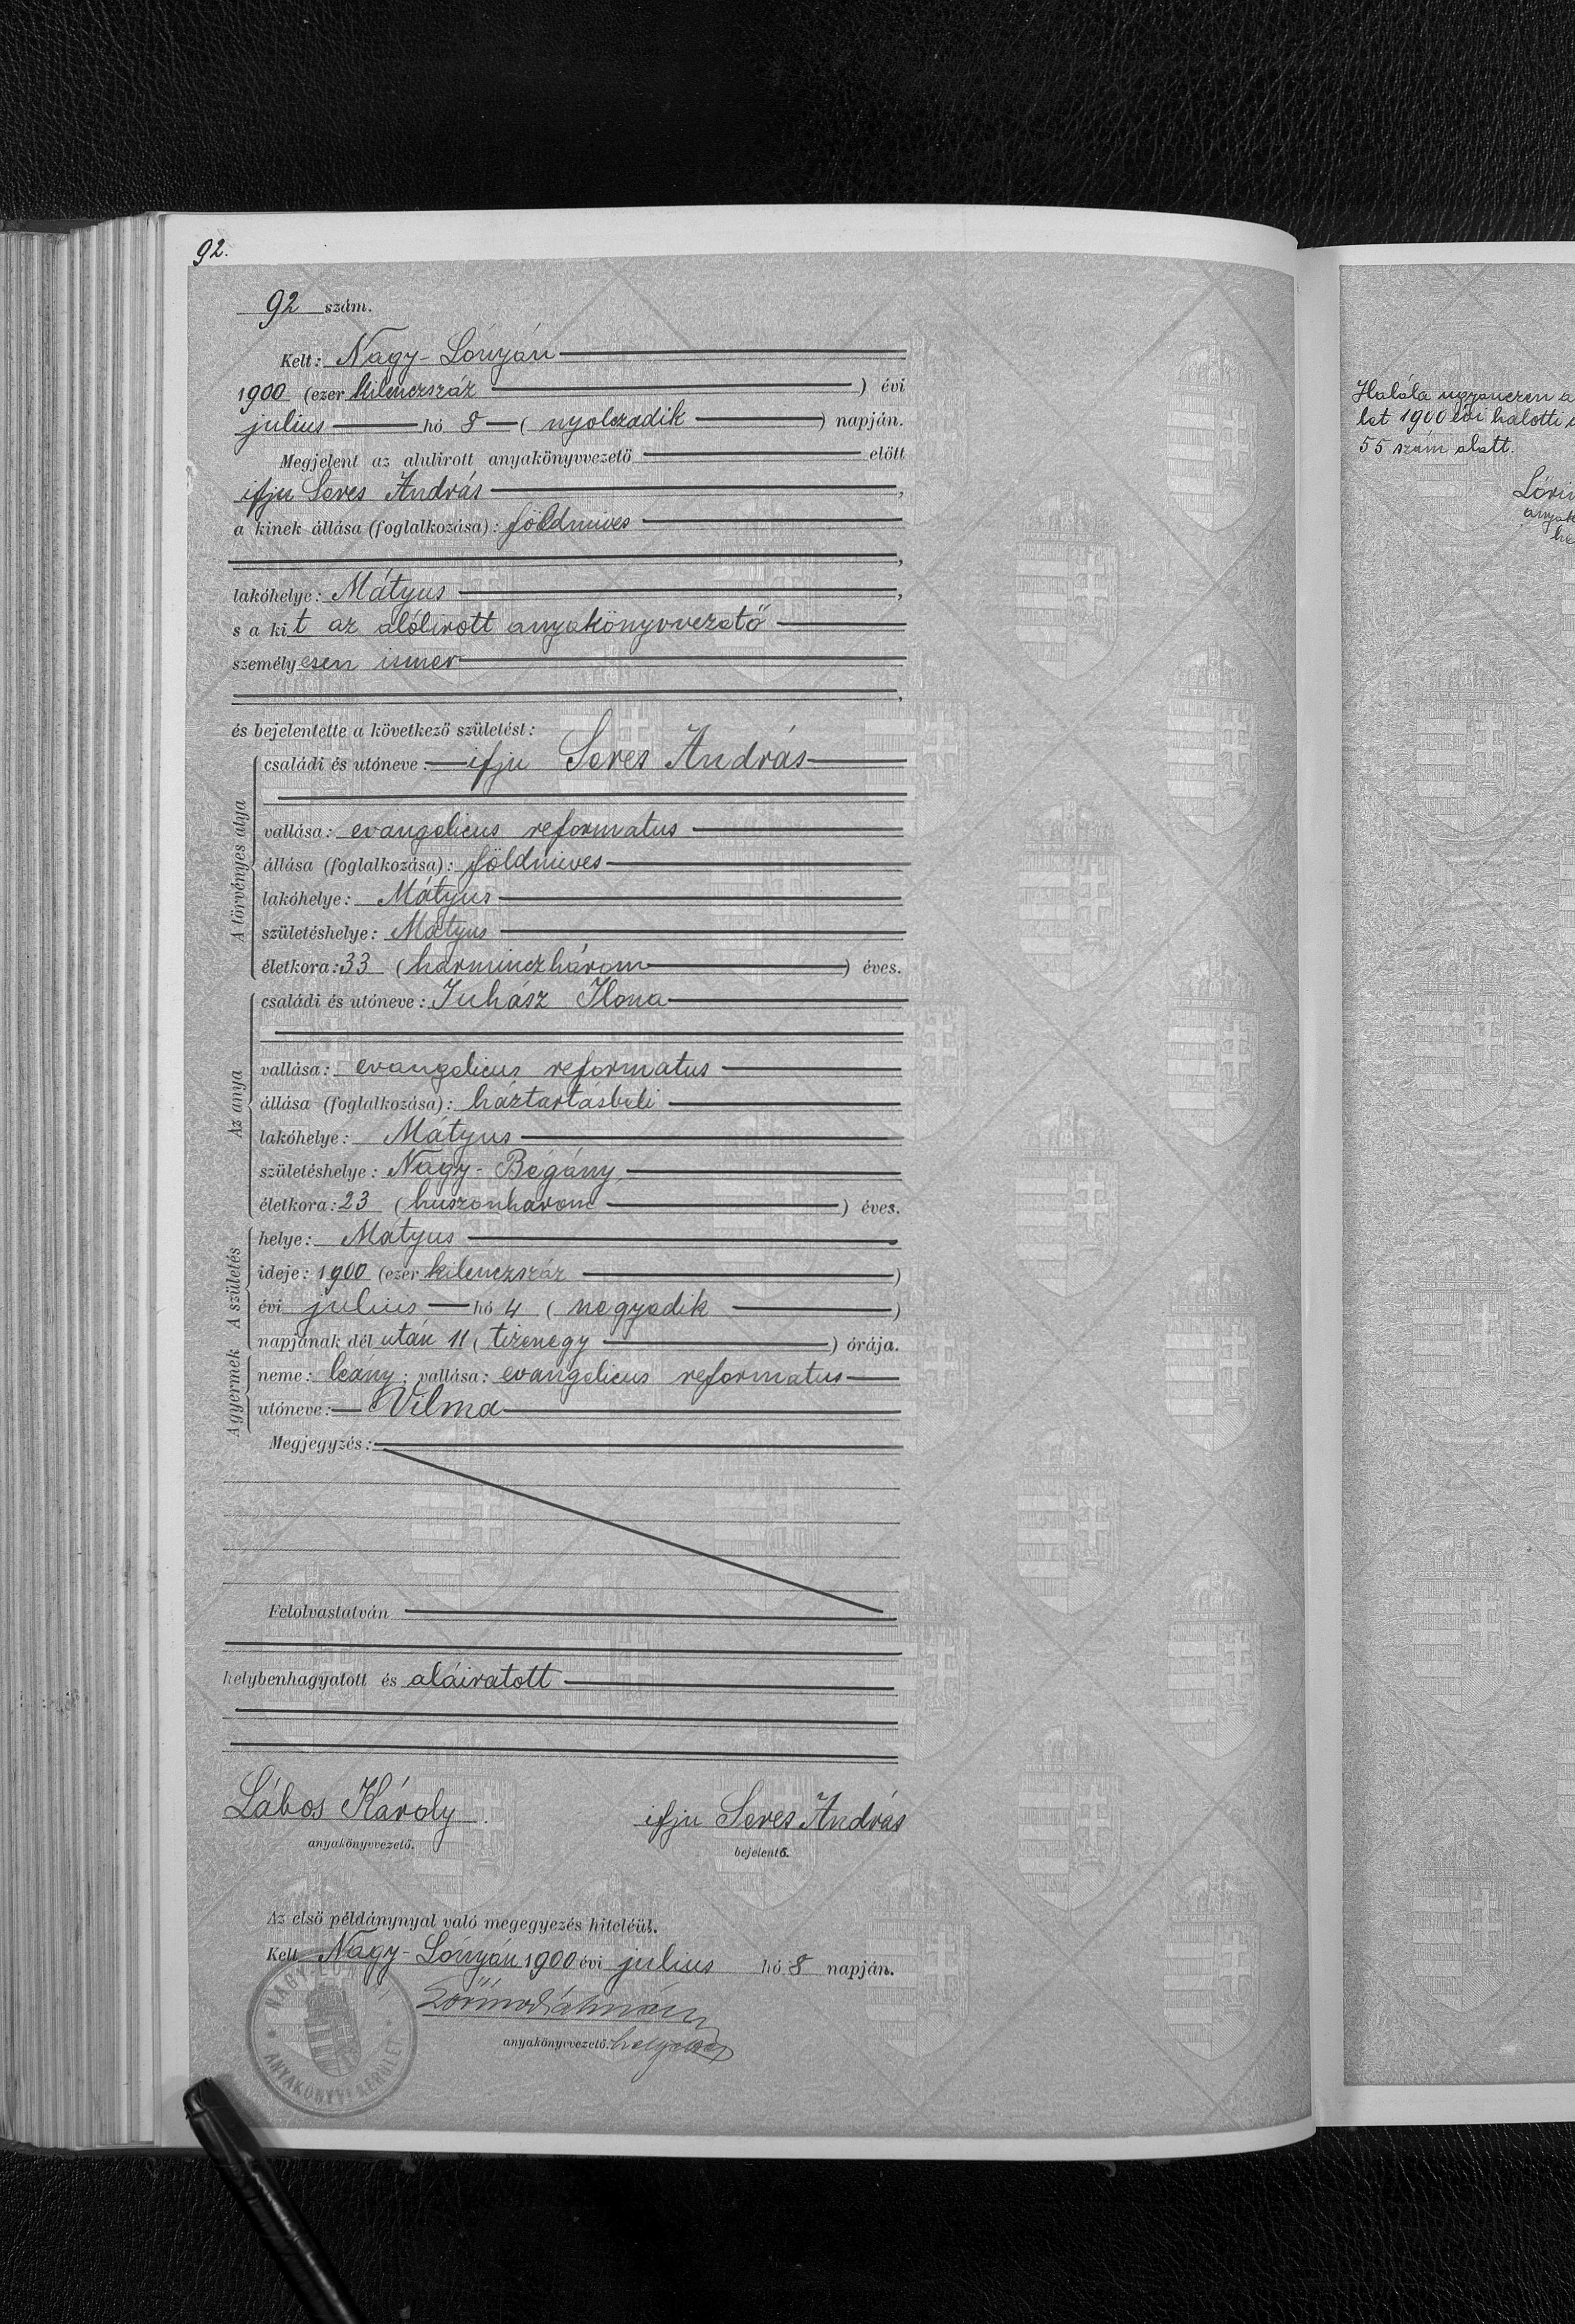 92.
92 szám.
Kelt: Nagy-Lónyán
1900 (ezer kilenczszáz ) évi
julius hó 8 ( nyolczadik ) napján.
Megjelent az alulirott anyakönyvvezető előtt
ifju Seres András ,
a kinek állása (foglalkozása): földmíves
,
lakóhelye: Mátyus ,
s a kit az alólirott anyakönyvvezető
személyesen ismer
,
és bejelentette a következő születést:
A törvényes atya
családi és utóneve: ifju Seres András
vallása: evangelicus reformatus
állása (foglalkozása): földmíves
lakóhelye: Mátyus
születéshelye: Mátyus
életkora: 33 (harminczhárom ) éves.
Az anya
családi és utóneve: Juhász Ilona
vallása: evangelicus reformatus
állása (foglalkozása): háztartásbeli
lakóhelye: Mátyus
születéshelye: Nagy-Bégány,
életkora: 23 (huszonhárom ) éves.
A születés
helye: Mátyus
ideje: 1900 (ezer kilenczszáz )
évi julius hó 4 ( negyedik )
napjának dél után 11 ( tizenegy ) órája.
A gyermek
neme: leány; vallása: evangelicus reformatus
utóneve: Vilma
Megjegyzés:
Felolvastatván
helybenhagyatott és aláiratott
Lábos Károly ifju Seres András
anyakönyvvezető. bejelentő.
Az első példánynyal való megegyezés hiteléül.
Kelt Nagy-Lónyán 1900 évi julius hó 8 napján.
anyakönyvvezető. helyettes
NAGY-LÓNYAI
ANYAKÖNYVI KERÜLET
Halála ugyanezen
1900 évi halotti
55 szám alatt.